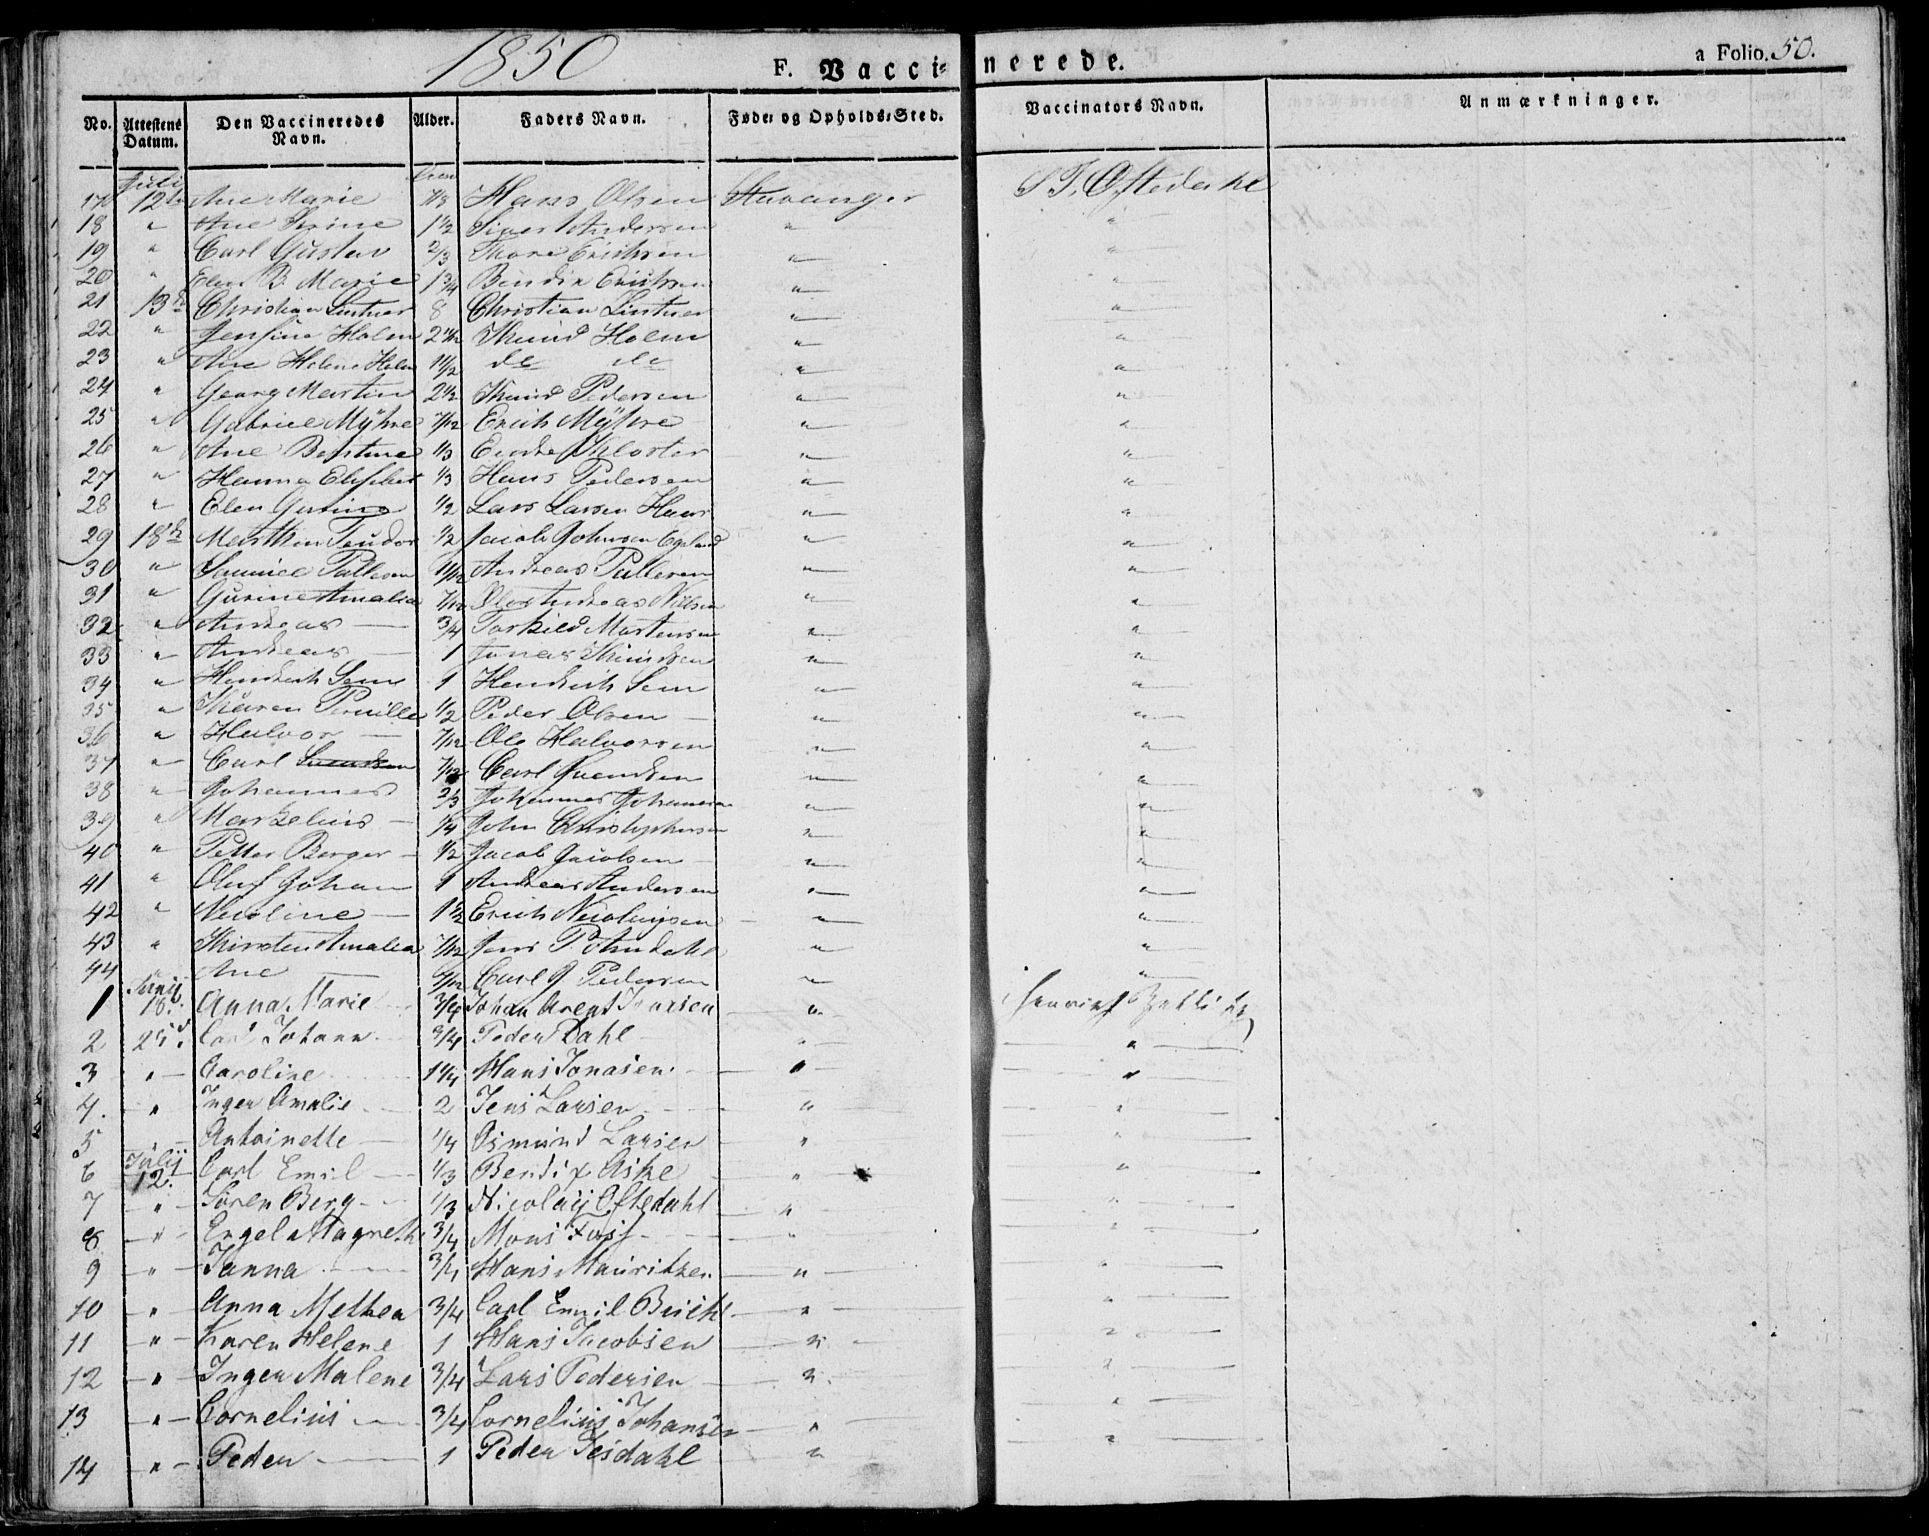 1850 F. Vaccinerede. a Folio. 50.
No. Attestens Datum. Den Vaccineredes Navn. Alder. Faders Navn. Føde- og Opholds-Sted. Vaccinators Navn. Anmærkninger.
Juli
17 12te Ane Marie 7/8 Hans Olsen Stavanger S T. Oftedahl
18 " Ane Serine 1½ Siver Andersen " "
19 " Carl Gustav 2/3 Thore Erichsen " "
20 " Elen B. Marie 1¾ Bendix Erichsen " "
21 13de Christian Lintner 8 Christian Lintner " "
22 " Jensine Holm Knud Holm " "
23 " Ane Helene Holm do do " "
24 " Georg Martin 2½ Knud Pedersen " "
25 " Gabriel Mÿhre 7/12 Erich Mÿhre " "
26 " Ane Bertine 1/3 Endre Kloster " "
27 " Hanna Elisabet 1/3 Hans Pedersen " "
28 " Elen Gurine ½ Lars Larsen Haar " "
29 18de Marthin Teodor ½ Jacob Johnsen Egeland " "
30 " Samuel Pallesen 11/12 Andreas Pallesen " "
31 " Gurine Amalia 7/12 Ole Andreas Nilsen " "
32 " Andreas — ¾ Torkild Mortensen " "
33 " Andreas — 1 Jonas Knudsen " "
34 " Hendrich Sem 1 Hendrich Sem " "
35 " Karen Pernille ½ Peder Olsen " "
36 " Halvor — 7/12 Ole Halvorsen " "
37 " Carl Svendsen 7/12 Carl Svendsen " "
38 " Johannes 2/3 Johannes Johannesen " "
39 " Markelius — ¼ John Christophersen " "
40 " Petter Berger — ½ Jacob Jacobsen " "
41 " Oluf Johan 1 Andreas Andersen " "
42 " Nicoline — 1½ Erich Nicolaysen " "
43 " Kirsten Amalia 7/12 Jens P. Omdahl " "
44 " Ane Carl G Pedersen " "
Junij
1 18. Anna Marie ¾ Johan Arent Iversen " Henrich
2 25d. Carl Johann ¾ Peder Dahl " "
3 " Caroline 1¼ Hans Jonasen " "
4. " Inger Amalie 2 Jens Larsen " "
5 Antoinette ¼ Osmund Larsen " "
Julij
6 12. Carl Emil 1/3 Bendix Aske " "
7 " Søren Berg 1/3 Nicolaÿ Oftedahl " "
8 " Engel Magreth ¾ Mons " "
9 " Janna ¾ Hans Mauritzen " "
10 " Anna Methea 3/4 Carl Emil " "
11 " Karen Helene 1 Hans Jacobsen " "
12 " Inger Malene 3/4 Lars Pedersen " "
13 " Cornelius 3/4 Cornelius Johansen " "
14 " Peder 1 Peder Tesdahl " "